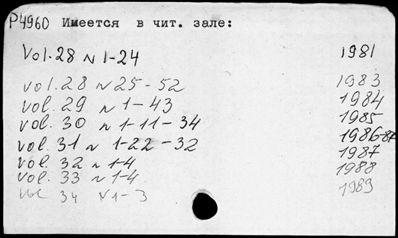 P4960 Имеется в чит. зале:
Vol.28 N 1-24 1981
vol.28 N 25-52 1983
vol. 29 N 1-43 1984
vol. 30 N 1-11-34 1985
vol. 31 N 1-22-32 1986-87
vol. 32 N 1-4 1987
vol. 33 N 1-4 1988
vol 34 N 1-3 1989